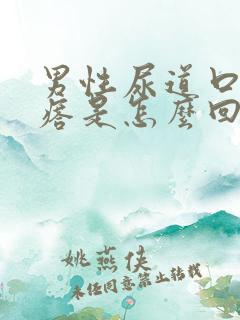 男性尿道口
痞是怎麼回
姚燕侠
未经同意禁止转载